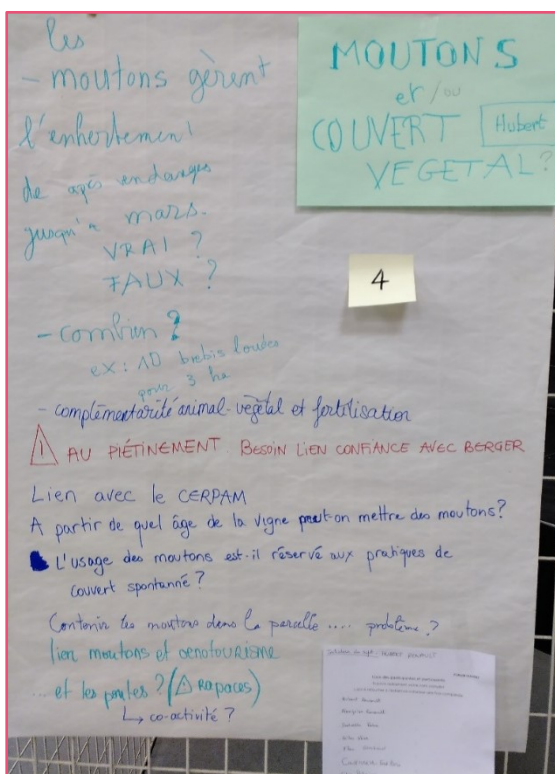 les
- moutons gèrent
l'enherbement
de après endanges
jusqu'à mars.
VRAI ?
FAUX ?
MOUTONS
et/ou
COUVERT
Hubert
VEGETAL?
4
- combien ?
ex: 10 brebis lourdes
pour 3 ha
- complémentarité animal-végétal et fertilisation
! AU PIÉTINEMENT BESOIN LIEN CONFIANCE AVEC BERGER
Lien avec le CERPAM
A partir de quel âge de la vigne peut-on mettre des moutons?
L'usage des moutons est-il réservé aux pratiques de
couvert spontanné ?
Contenir les moutons dans la parcelle .... problème ?
lien moutons et oenotourisme
... et les poules ? (! RAPACES)
↳ co-activité ?